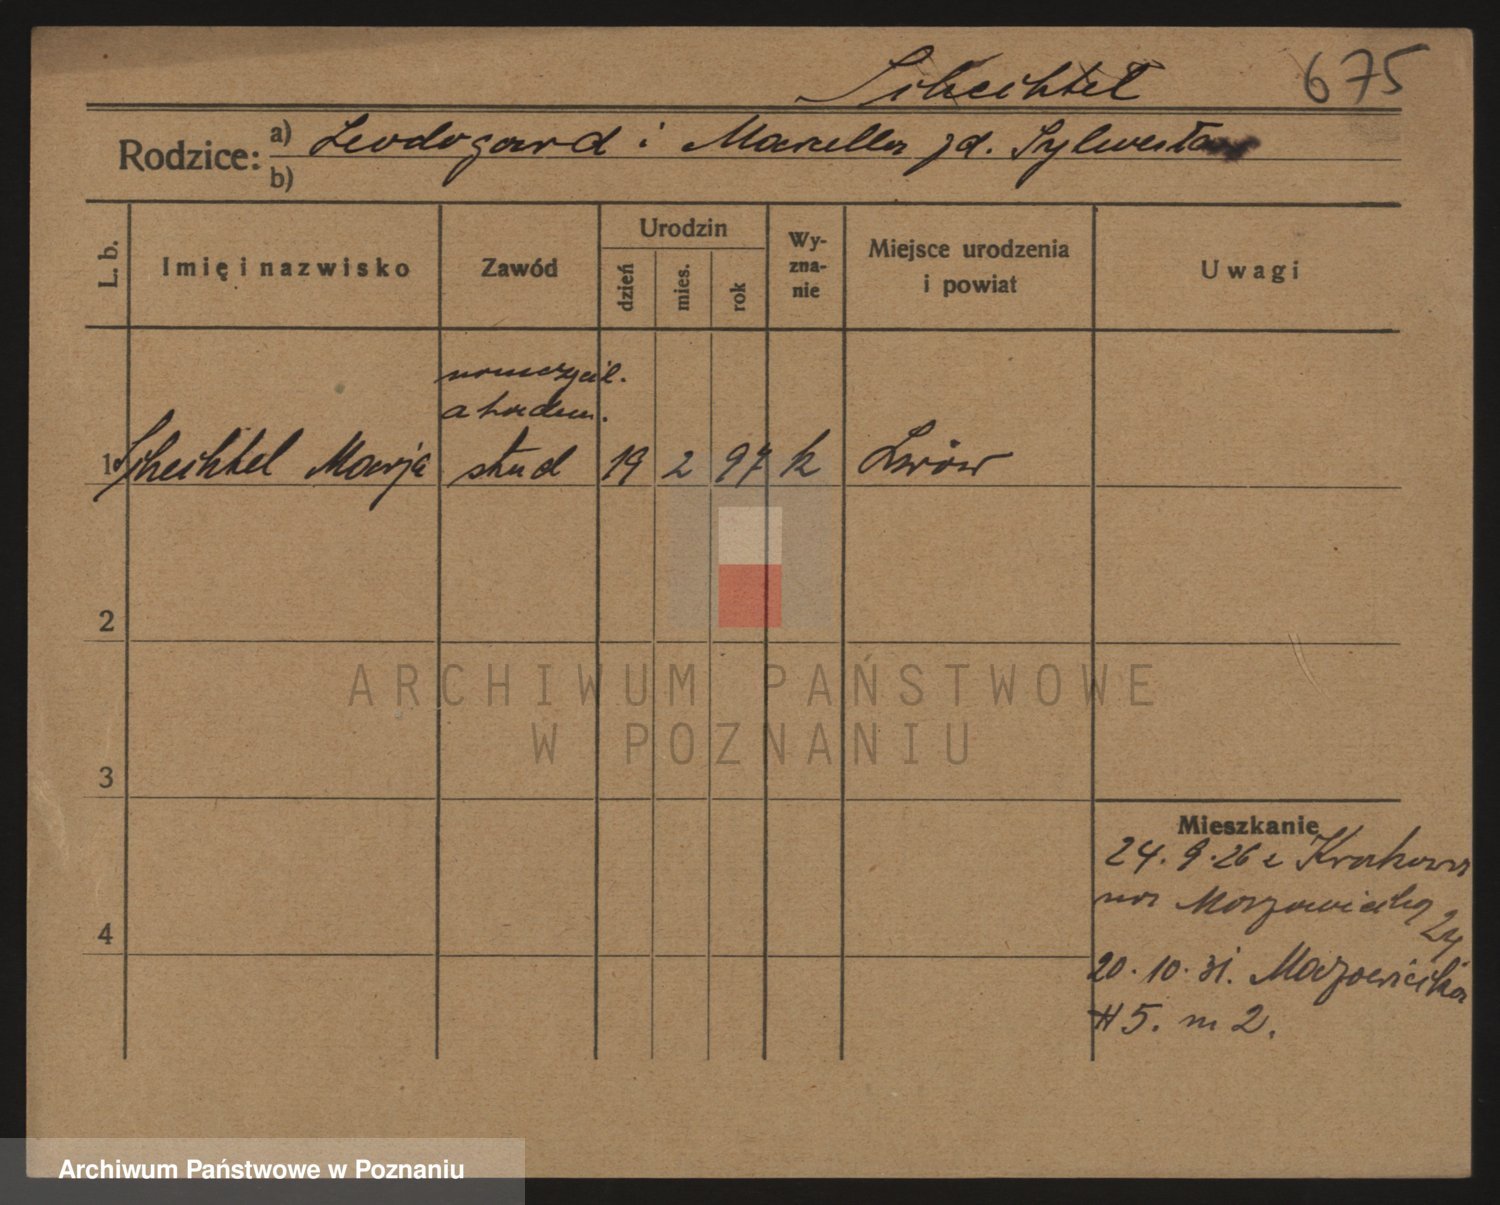 Schechtel 675
Rodzice: a) Leodogard i Marcella zd. Sylwestra
b)
L. b. Imię i nazwisko Zawód Urodzin dzień mies. rok Wyznanie Miejsce urodzenia i powiat Uwagi
nauczyciel.
akadem.
1 Schechtel Marja stud 19 2 97 k Lwów
2
ARCHIWUM PAŃSTWOWE
W POZNANIU
3
Mieszkanie
24. 9. 26 z Krakowa
na Mazowiecką 24
4
20. 10. 31. Mazowiecka
45. m 2.
Archiwum Państwowe w Poznaniu